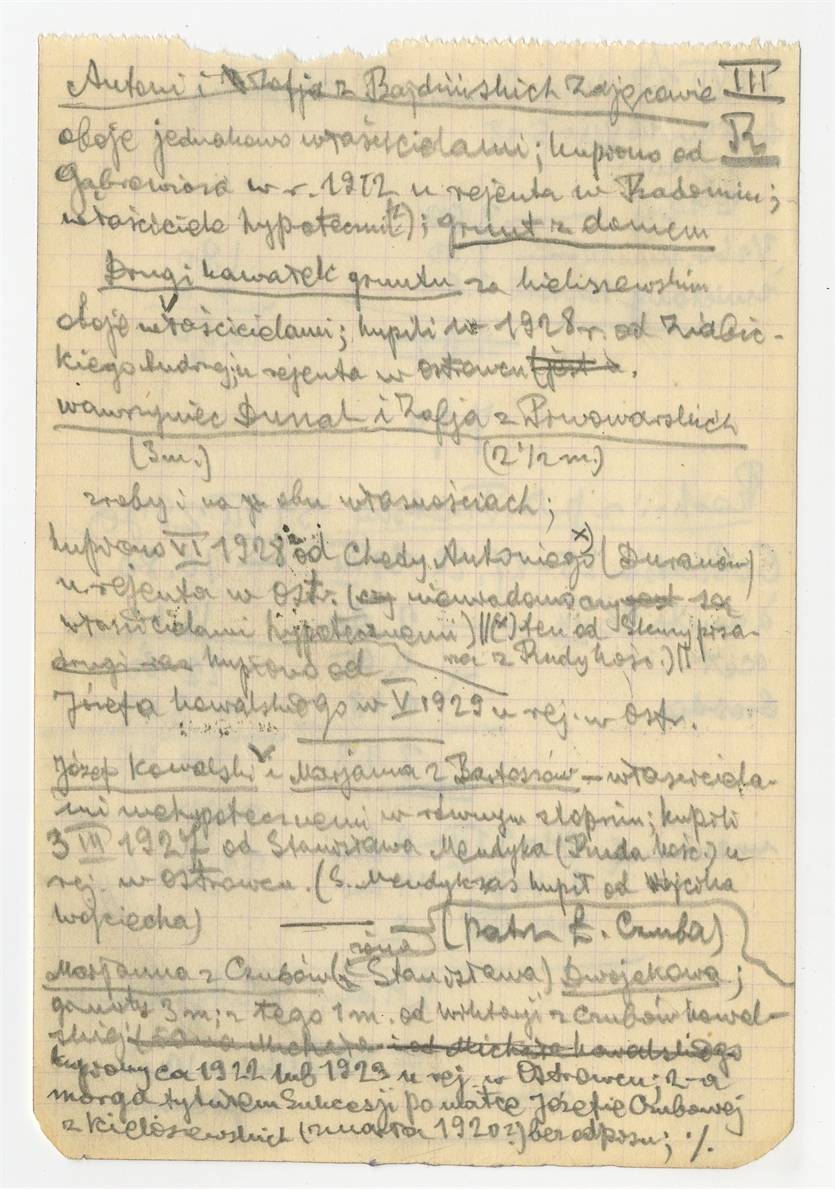 Antoni i Zofja z Bajdzińskich Zajęcowie III
oboje jednakowo właścicielami; kupiono od R
Gąbrowicza w r. 1912 u rejenta w Radomiu;
właściciele hypoteczni(?); grunt z domem
Drugi kawałek gruntu za kieliszewskim
oboje właścicielami; kupili w 1928 r. od Ziabic-
kiego Andrzeja; u rejenta w Ostrowcu (jest
Wawrzyniec Dunal i Zofja z Piwowarskich
(3 m.) (2 1/2 m.)
zroby i na obu własnościach;
kupiono VI 1928 od Chedy Antoniego x) (Duranów)
u rejenta w Ostr. (czy niewiadomo czy są
właścicielami hypotecznemi) || (x) ten od Skrzypcza-
ka z Rudy Kość.) ||
drugi raz kupiono od
Józefa Kowalskiego w V 1929 u rej. w Ostr.
Józef Kowalski i Marjanna z Bartoszów – właściciela-
mi niehypotecznemi w równym stopniu; kupili
3 III 1927 od Stanisława Mendyka (Ruda Kość.) u
rej. w Ostrowcu. (S. Mendyk zaś kupił od Wójcika
Wojciecha)
(patrz Ł. Czuba)
żona
Marjanna z Czubów (Stanisława) Dwojakowa;
gruntu 3 m; z tego 1 m. od Wiktorji z Czubów Kowal-
skiej i od Michała Kowalskiego
kupiony ca 1922 lub 1923 u rej. w Ostrowcu; 2-a
morga tytułem sukcesji po matce Józefie Czubowej
z Kieliszewskich (zmarła 1920?) bez odpisu; ./.